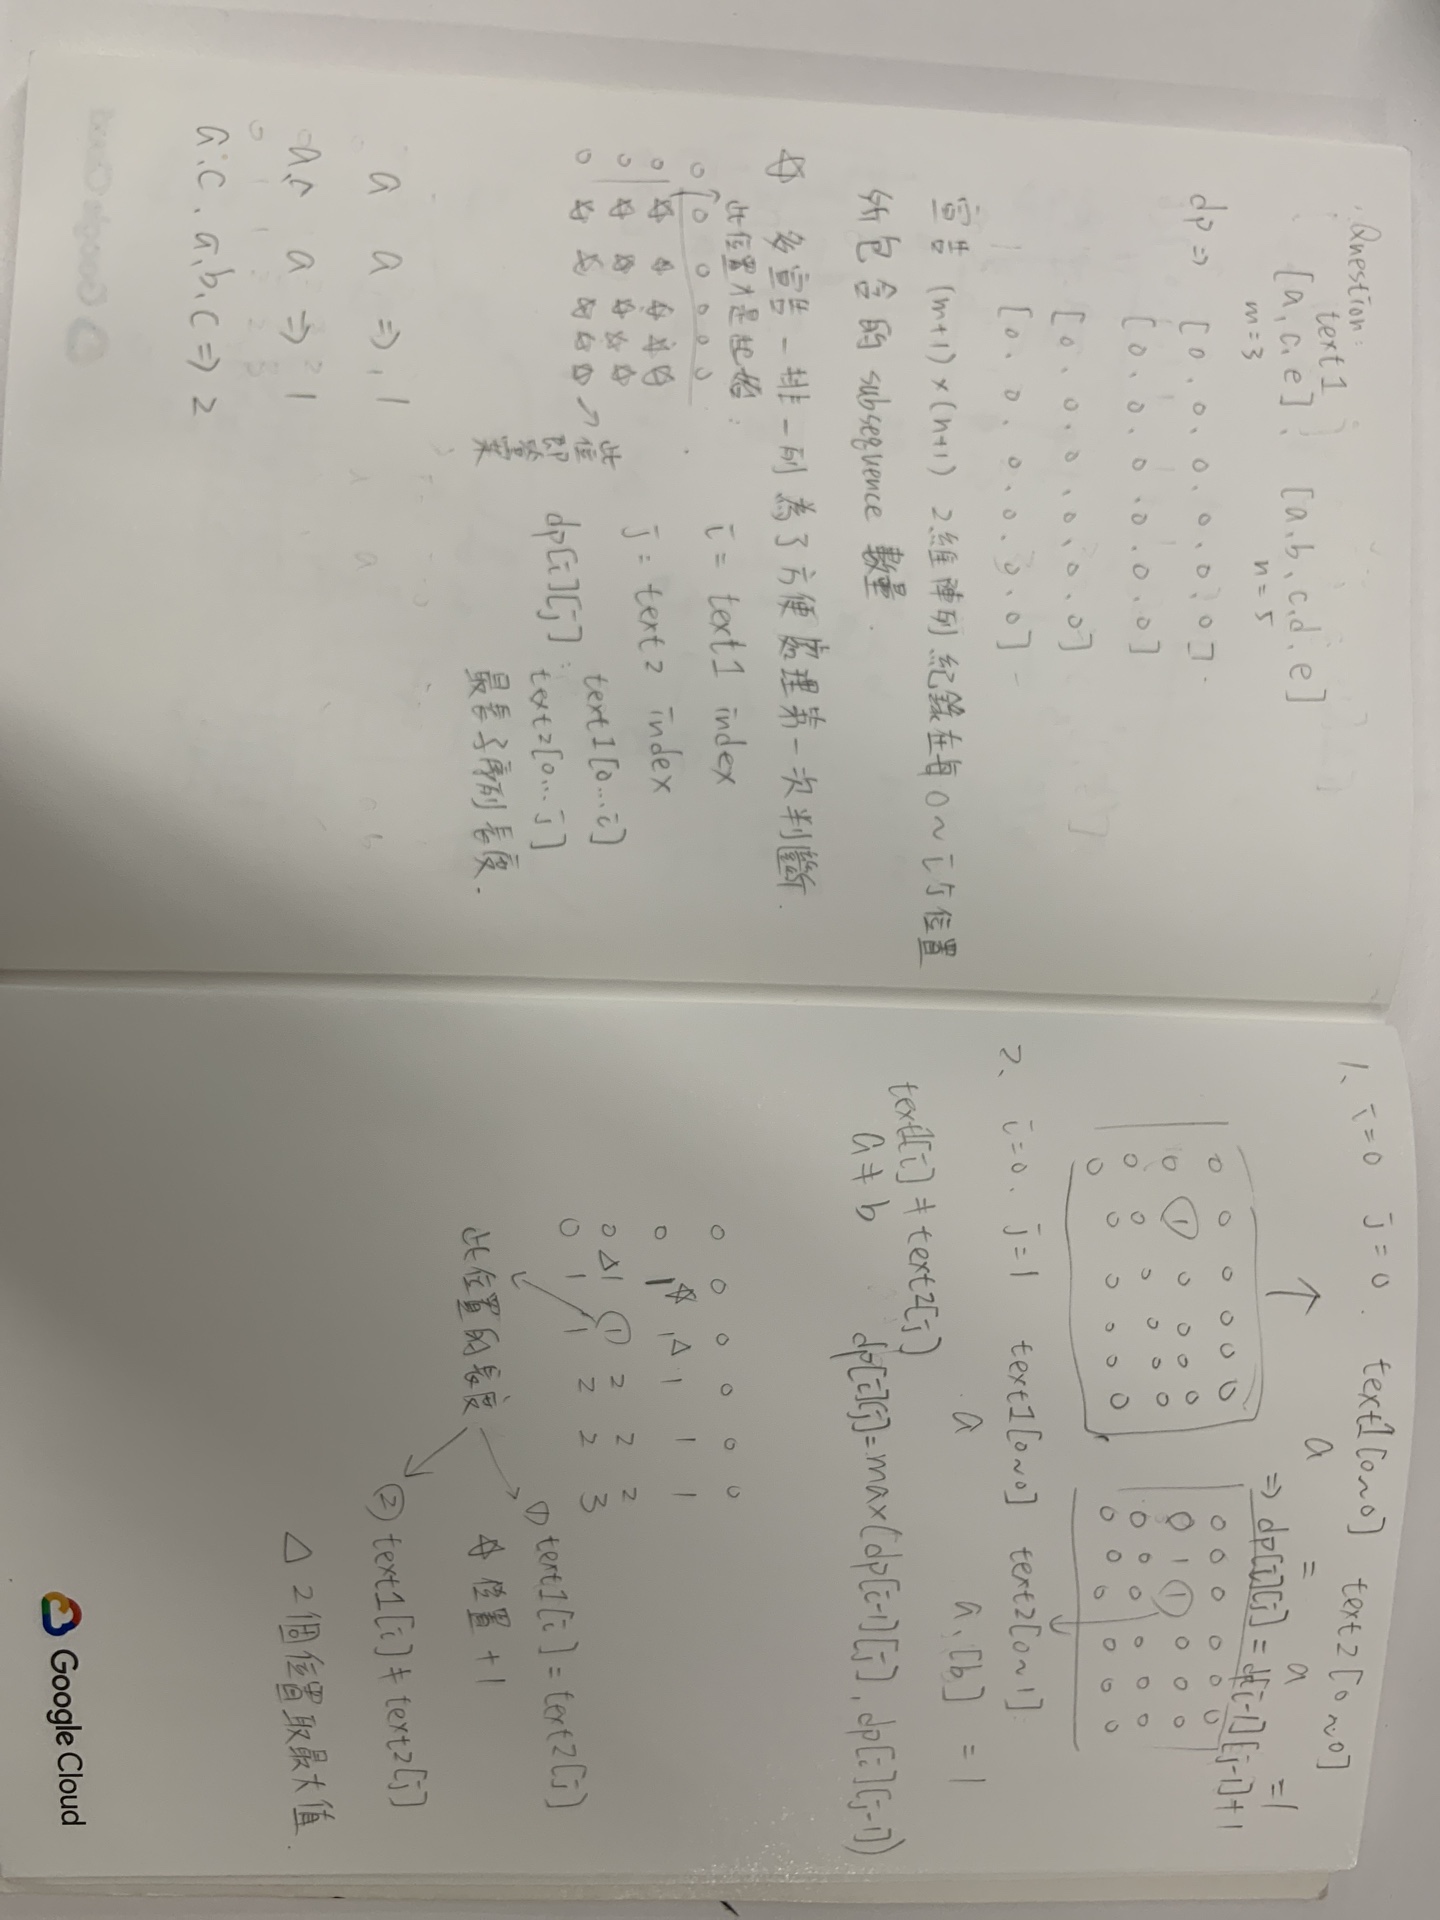 Question:
text1
[a, c, e], [a, b, c, d, e]
m=3 n=5
dp => [0, 0, 0, 0, 0, 0]
[0, 0, 0, 0, 0, 0]
[0, 0, 0, 0, 0, 0]
[0, 0, 0, 0, 0, 0]
宣告 (m+1)×(n+1) 2維陣列 紀錄在每0~i j位置
所包含的 subsequence 數量.
☆ 多宣告一排一列 為了方便處理第一次判斷.
此位置才是起始.
0 0 0 0 0 0
0 ☆ ☆ ☆ ☆ ☆
0 ☆ ☆ ☆ ☆ ☆
0 ☆ ☆ ☆ ☆ ☆
此位即答案
i = text1 index
j = text2 index
dp[i][j]: text1[0...i]
text2[0...j]
最長子序列長度.
a a => 1
a, c a => 1
a, c, a, b, c => 2
1、 i=0 j=0. text1[0~0] text2[0~0]
a = a =1
=> dp[i][j] = dp[i-1][j-1]+1
0 0 0 0 0 0
0 1 0 0 0 0
0 0 0 0 0 0
0 0 0 0 0 0
0 0 0 0 0 0
0 1 1 0 0 0
0 0 0 0 0 0
0 0 0 0 0 0
2、 i=0. j=1 text1[0~0] text2[0~1]
a a, [b] = 1
text1[i] ≠ text2[j]
a ≠ b dp[i][j]=max(dp[i-1][j], dp[i][j-1])
0 0 0 0 0 0
0 1☆ 1△ 1 1 1
0 △1 ① 2 2 2
0 1 1 2 2 3
此位置的長度
① text1[i] = text2[j]
☆ 位置 +1
② text1[i] ≠ text2[j]
△ 2個位置取最大值.
Google Cloud